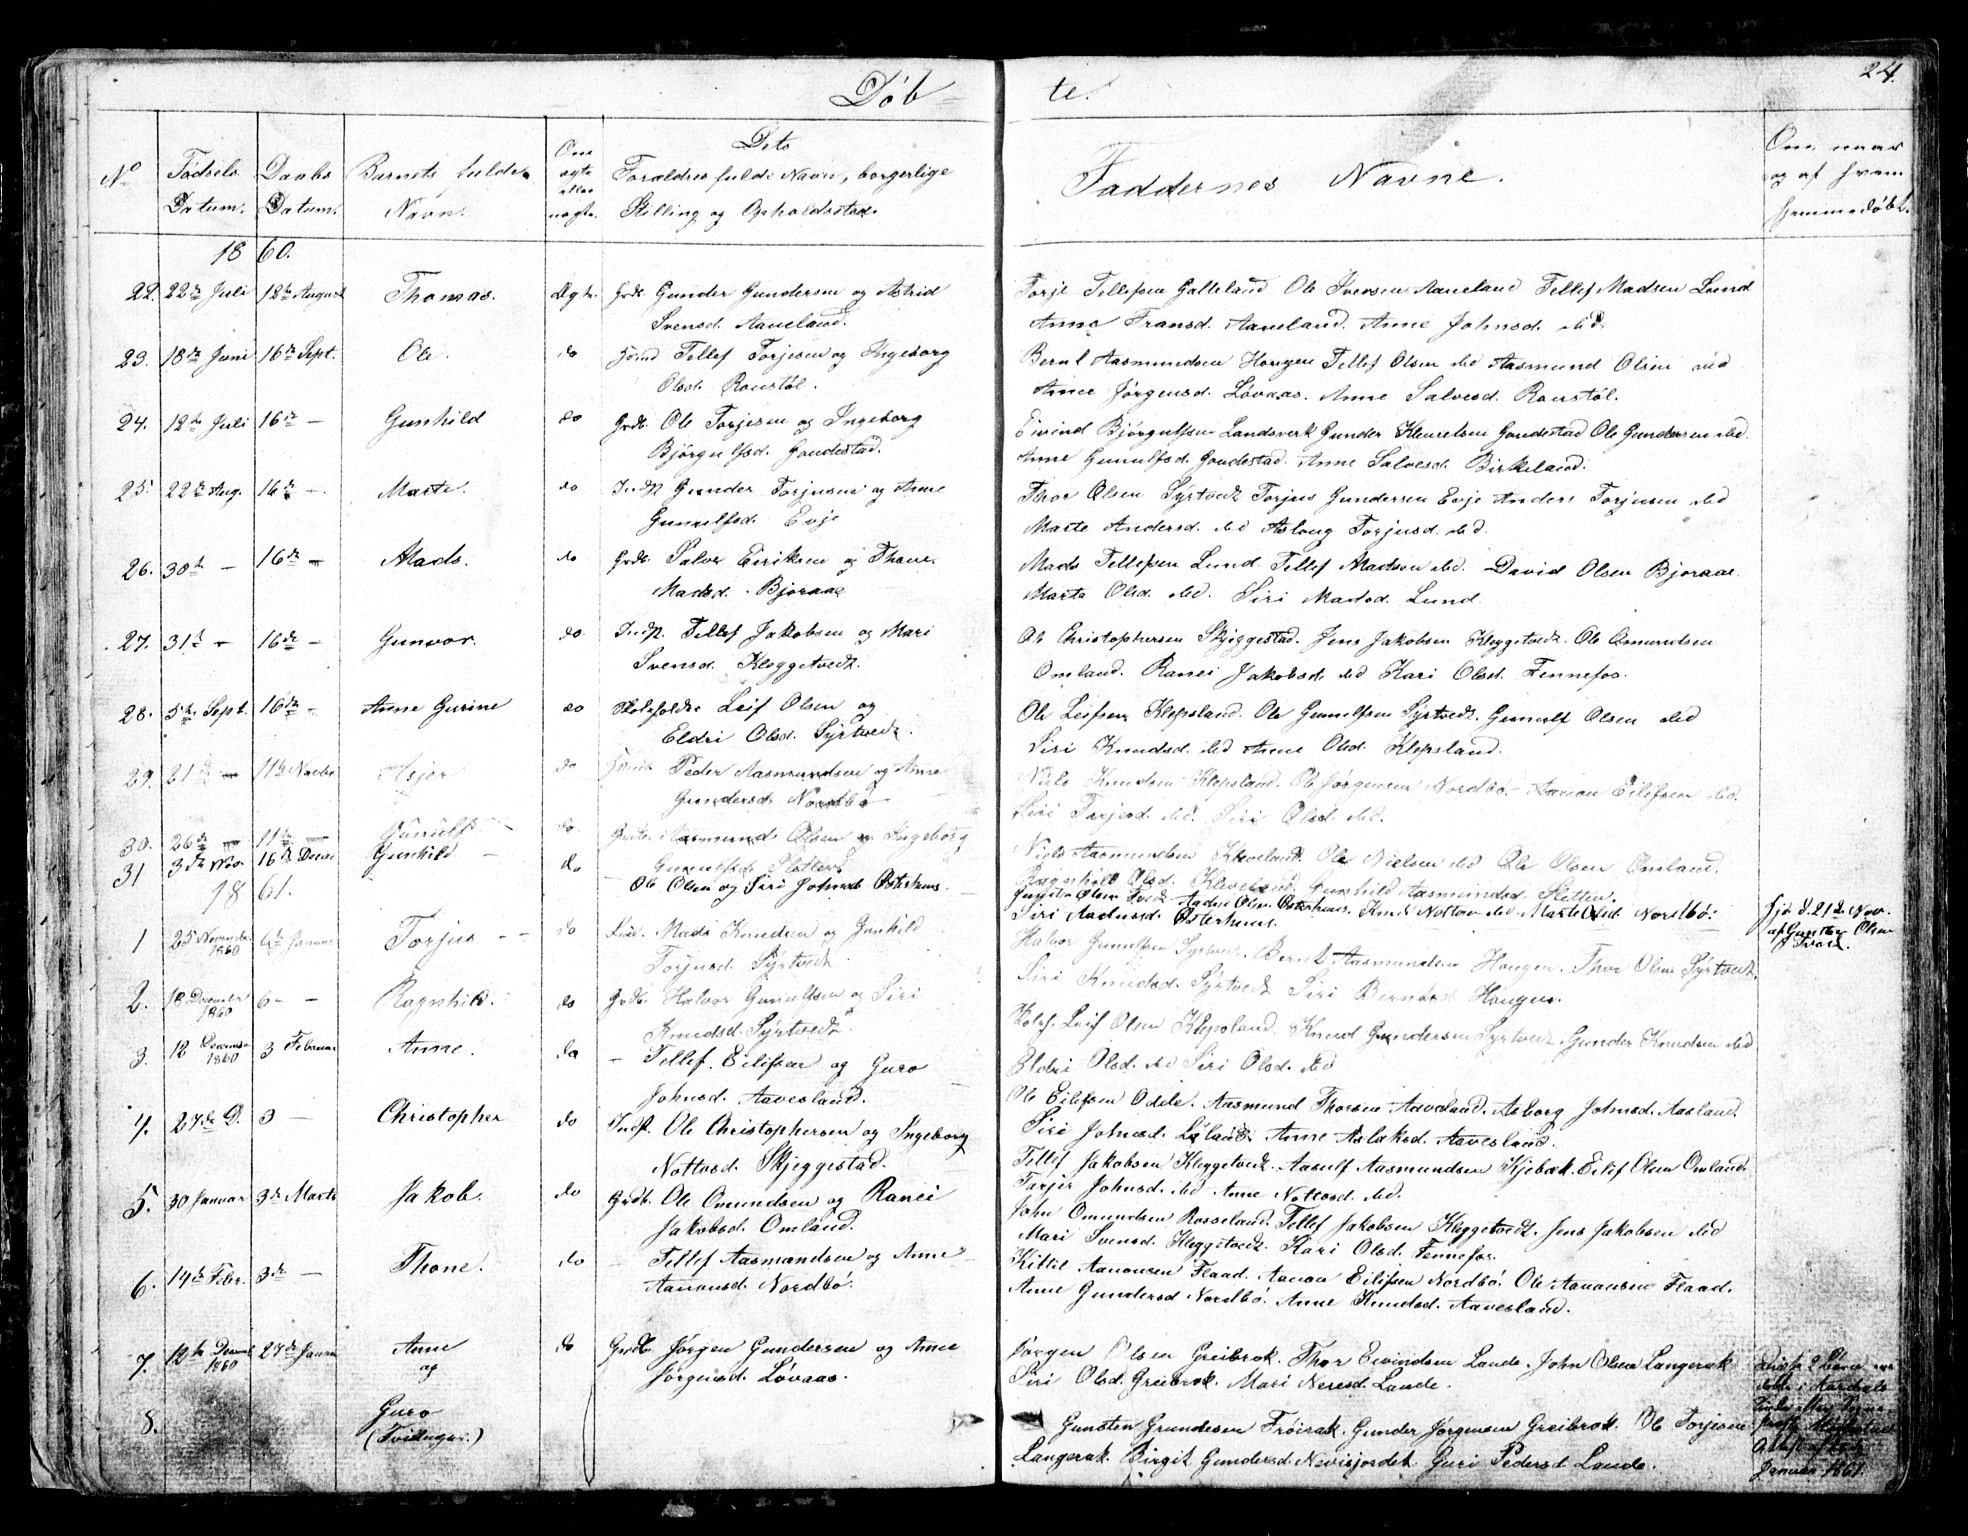 24.
Döb-
te.
No
Fødsels Datum.
Daabs Datum.
Barnets fulde Navn.
Om ægte eller uægte.
Dets Forældres fulde Navn, borgerlige Stilling og Opholdssted.
Faddernes Navne.
Om naar og af hvem hjemmedøbt.
1860.
22. 22de Juli 12te August Thomas. Ægte. Grdb. Gunder Gundersen og Astrid
Svensd. Aaneland.
Torje Tellefsen Galteland Ole Svensen Aaneland Tellef Madsen Lund
Anne Fransd. Aaneland. Anne Johnsd. ibid.
23. 18de Juni 16de Sept. Ole. do Tellef Torjesen og Ingeborg
Olsd. Ronstöl.
Bernt Aasmundsen Hougen Tellef Olsen ibid Aasmund Olsen ibid
Anne Jörgensd. Lövaas. Anne Salvesd. Ronstöl.
24. 12te Juli 16de — Gunhild do Grdb. Ole Torjesen og Ingeborg
Björgulfsd. Goudestad.
Eivind Björgulfsen Landsverk Gunder Goudestad Ole Gundersen ibid.
Anne Gunulfsd. Goudestad. Anne Salvesd. Birkeland.
25. 22de Aug. 16de — Marte. do Indr. Gunder Torjusen og Anne
Gunulfsd. Evje
Thor Olsen Syrtvedt Torjus Gundersen Evje Anders Torjusen ibid
Marte Andersd. ibid Aslaug Torjusd. ibid.
26. 30te — 16de — Mads. do Grdb. Salve Eiriksen og Thone
Madsd. Bjoraae
Mads Tellefsen Lund Tellef Madsen ibid. David Olsen Bjoraae.
Marte Olsd. ibid. Siri Madsd. Lund.
27. 31t — 16de — Gunvor. do. Indr. Tellef Jakobsen og Mari
Svensd. Kleggetvedt.
Ole Christophersen Skjeggestad. Jens Jakobsen Kleggetvedt. Ole Omundsen
Omland. Ranei Jakobsd. ibid Kari Olsd. Fennefos.
28. 5te Sept. 16de — Anne Gurine do Leif Olsen og
Eldri Olsd. Syrtvedt.
Ole Leifsen Klepsland. Ole Gunulfsen Syrtvedt. Gunulf Olsen ibid
Siri Knudsd. ibid Anne Olsd. Klepsland.
29. 21 — 11te Novbr Asjer do Peder Aasmundsen og Anne
Gundersd. Nordbö
Niels Knudsen Klepsland. Ole Jörgensen Nordbö. Aanon Eilefsen ibid.
Siri Torjesd. ibid. Siri Olsd. ibid.
30. 26de — 11te — Gunulf do. Aasmund Olsen og Ingeborg
Gunulfsd. Sletten
Niels Aasmundsen Kleveland. Ole Nielsen ibid Ole Olsen Omland.
Ragnhild Olsd. Kleveland. Gunhild Aasmundsd. Sletten.
31 3de Nov. 16de Decbr Gunhild — do Ole Olsen og Siri Johnsd. Österhuus.
Gunsten Olsen Tveit Aadne Olsen Österhuus. Knud Nottov ibid. Marte Olsd. Nordbö.
Siri Aadnesd. Österhuus.
Hjd. d. 21de Nov.
af Gunsten Olsen
Tveit.
1861.
1 25 November 1860 6te Januar Torjus do Mads Knudsen og Gunhild
Torjusd. Syrtvedt
Halvor Gunulfsen Syrtvedt. Bernt Aasmundsen Hougen. Thor Olsen Syrtvedt.
Siri Knudsd. Syrtvedt Siri Berntsd. Hougen.
2. 18 December 1860 6 — Ragnhild. do Grdb. Halvor Gunulfsen og Siri
Knudsd. Syrtvedt.
Leif Olsen Klepsland. Knud Gundersen Syrtvedt. Gunder Knudsen ibid
Eldri Olsd. ibid Siri Olsd. ibid
3. 12 December 1860 3 Februar Anne. do — Tellef Eilefsen og Guro
Johnsd. Aavesland.
Ole Eilefsen Odde. Aasmund Thorsen Aavesland. Asborg Johnsd. Aasland.
Siri Johnsd. Anne Aslaksd. Aavesland.
4. 27de D. 3 — Christopher do Indr. Ole Christophersen og Ingeborg
Nottosd. Skjeggestad.
Tellef Jakobsen Kleggetvedt. Aasulf Aasmundsen Kjebæk. Eilef Olsen Omland.
Torjer Johnsd. ibid Anne Nottosd. ibid.
5. 30 Januar 3de Marts Jakob. do Grdb. Ole Omundsen og Ranei
Jakobsd. Omland.
John Omundsen Rosseland. Tellef Jakobsen Kleggetvedt. Jens Jakobsen ibid
Mari Svensd. Kleggetvedt. Kari Olsd. Fennefos.
6. 14de Febr. 3de — Thone. do — Tellef Aasmundsen og Anne
Aanonsd. Nordbö.
Kittil Aanonsen Flaad. Aanon Eilefsen Nordbö. Ole Aanonsen Flaad.
Anne Gundersd Nordbö. Anne Knudsd. Aavesland.
7. 12te Decemb 1860 27de Januar Anne do Grdb. Jörgen Gundersen og Anne
og Jörgensd. Lövaas.
Jörgen Olsen Greibrok. Thor Eivindsen Lande. John Olsen Langerak
Siri Olsd. Greibrok. Mari Neresd. Lande.
8. Guro
(Tvillinger.)
Gunsten Frøirak. Gunder Jörgensen Greibrok. Ole Torjesen
Langerak. Birgit Gundersd. Guri Pedersd Lande.
Disse 2 Børn
Januar 1861.